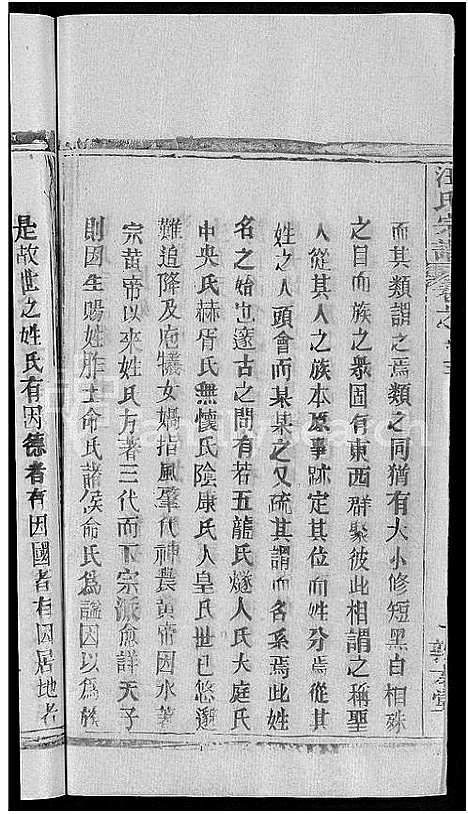 汪氏宗譜
卷之
而其類謂之焉類之同猶有大小修短黑白相殊
之目而族之衆固有東西群聚彼此相謂之稱聖
人從其人之族本原事跡定其位而姓分焉從其
姓之人頭會而某某之又疏其謂而名系焉此姓
名之始也邃古之間有若五龍氏燧人氏大庭氏
中央氏赫胥氏無懷氏陰康氏人皇氏世已悠邈
難追降及府犧女媧指風肇代神農黃帝因水著
宗黃帝以來姓氏方著三代而下宗派愈詳天子
則因生賜姓胙土命氏諸侯命氏爲謚因以爲族
是故世之姓氏有因德者有因國者有因居地者